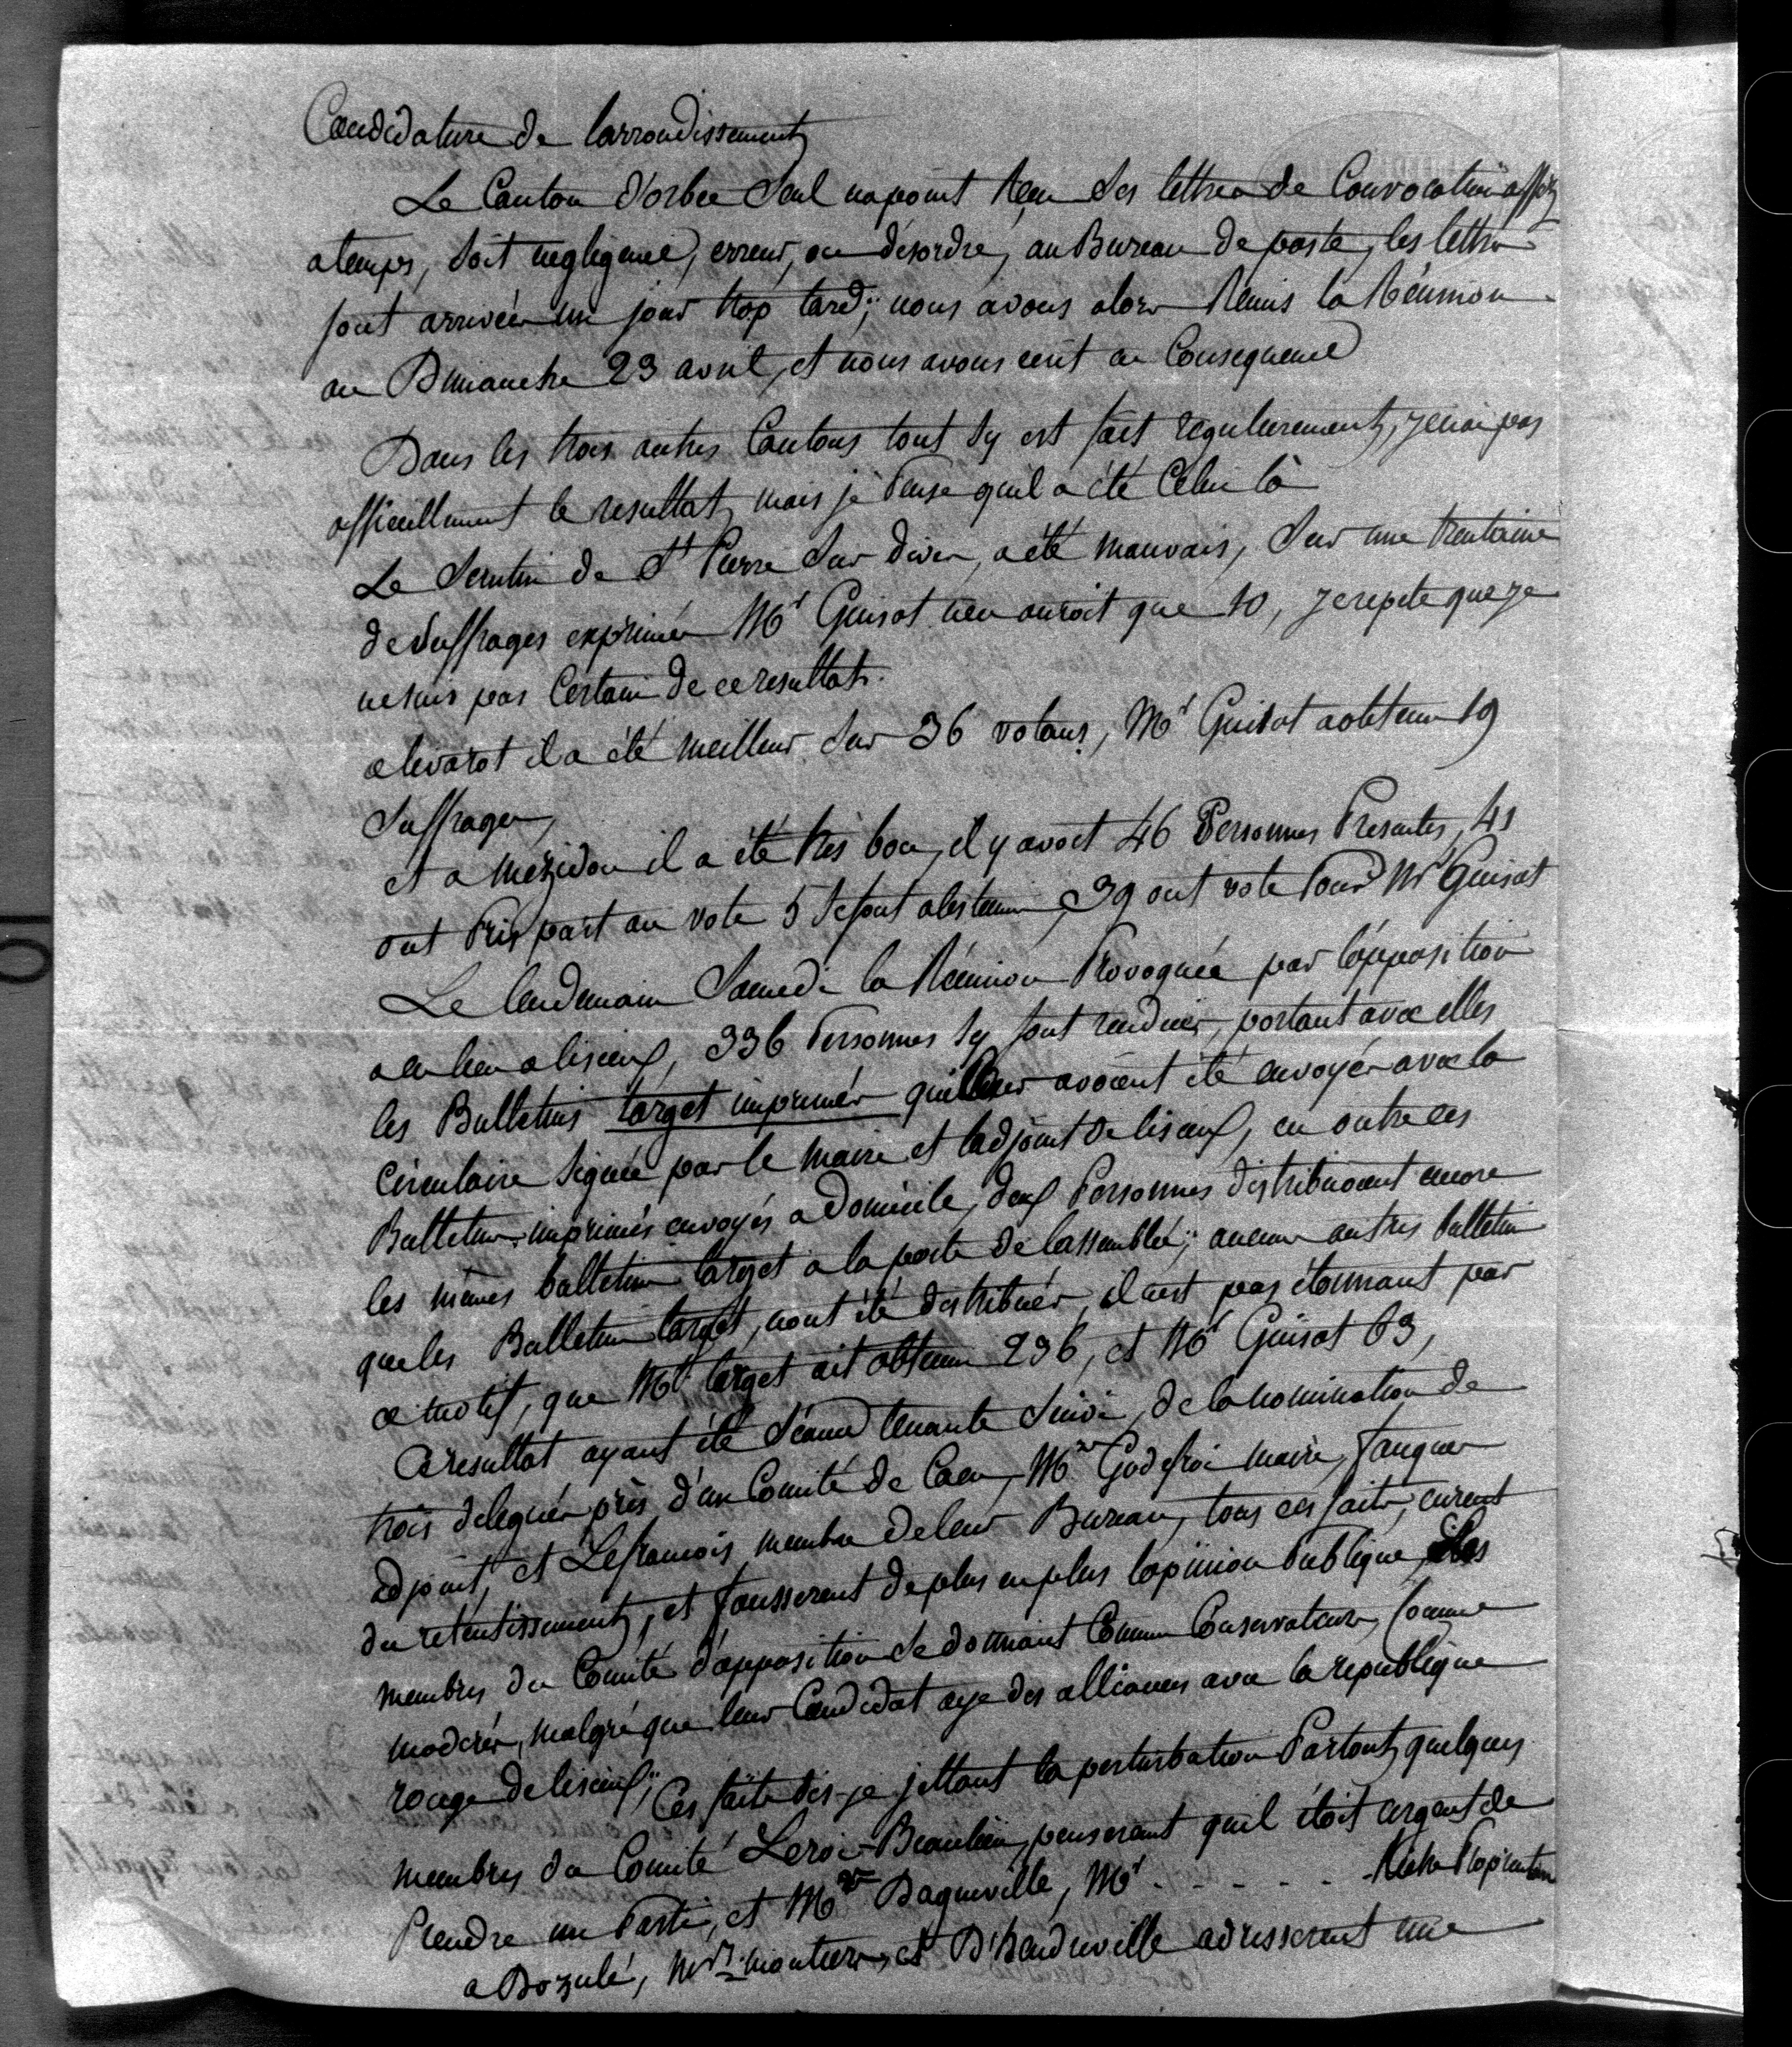 Candidature de l'arrondissement
Le Canton d'orbec seul na point Reçu ses lettres de Convocation assez
atemps, soit negligence, erreur, ou désordre, au Bureau de poste, les lettres
sont arrivées un jour trop tard; nous avons alors Remis la Réunion
au Dimanche 23 avril, et nous avons ecrit en Consequence
Dans les trois autres Cantons tout sy est fait regulierement, je nai pas
officiellement le resultat, mais je Pense quil a été Celui là
Le Scrutin de St Pierre Sur dives, a été mauvais, Sur une trentaine
de Suffrages exprimés Mr Guisot nen auroit que 10, je repete que je
ne suis pas Certain de ce resultat.
a livarot il a été meilleur Sur 36 votans, Mr Guisot a obtenu 19
Suffrages,
et a mezidon il a été très bon, il y avoit 46 Personnes Presentes, 41
ont Pris part au vote 5 Se sont abstenus, 39 ont voté Pour Mr Guisot
Le lendemain Samedi la Réunion Provoquée par l'opposition
a eu lieu a lisieux, 336 Personnes sy sont rendues, portant avec elles
les Bulletins target imprimés qui leur avoient été envoyés avec la
Circulaire Signée par le maire et l'adjoint de lisieux, en outre ces
Bulletins imprimés envoyés a Domicile, deux Personnes distribuoient encore
les mêmes bulletins target a la porte de lassemblée; aucuns autres bulletins
que les Bulletins target, nont été distribués, il nest pas étonnant par
ce motif, que Mr target ait obtenu 236, et Mr Guisot 63,
Ce resultat ayant été Séance tenante Suivi, de la nomination de
trois delegués près d'un Comité de Caen, Mrs Godefroi maire, fauques
adjoint, et Lefrancois membre de leur Bureau, tous ces faits, eurent
du retentissement, et fausserent de plus en plus lopinion Publique, Les
membres du Comité d'opposition Se donnant Comme Conservateurs, Comme
moderés, malgré que leur Candidat aye des alliances avec la republique
rouge de lisieux; Ces faits dis-je jettant la perturbation Partout, quelques
membres du Comité Leroi-Beaulieu, penserent quil étoit urgent de
Prendre un Parti, et Mrs Daqueville, Mr . . . . . . Riche Proprietaire
a Dozulé, Mrs moutiers, et D'hendreville adresserent une